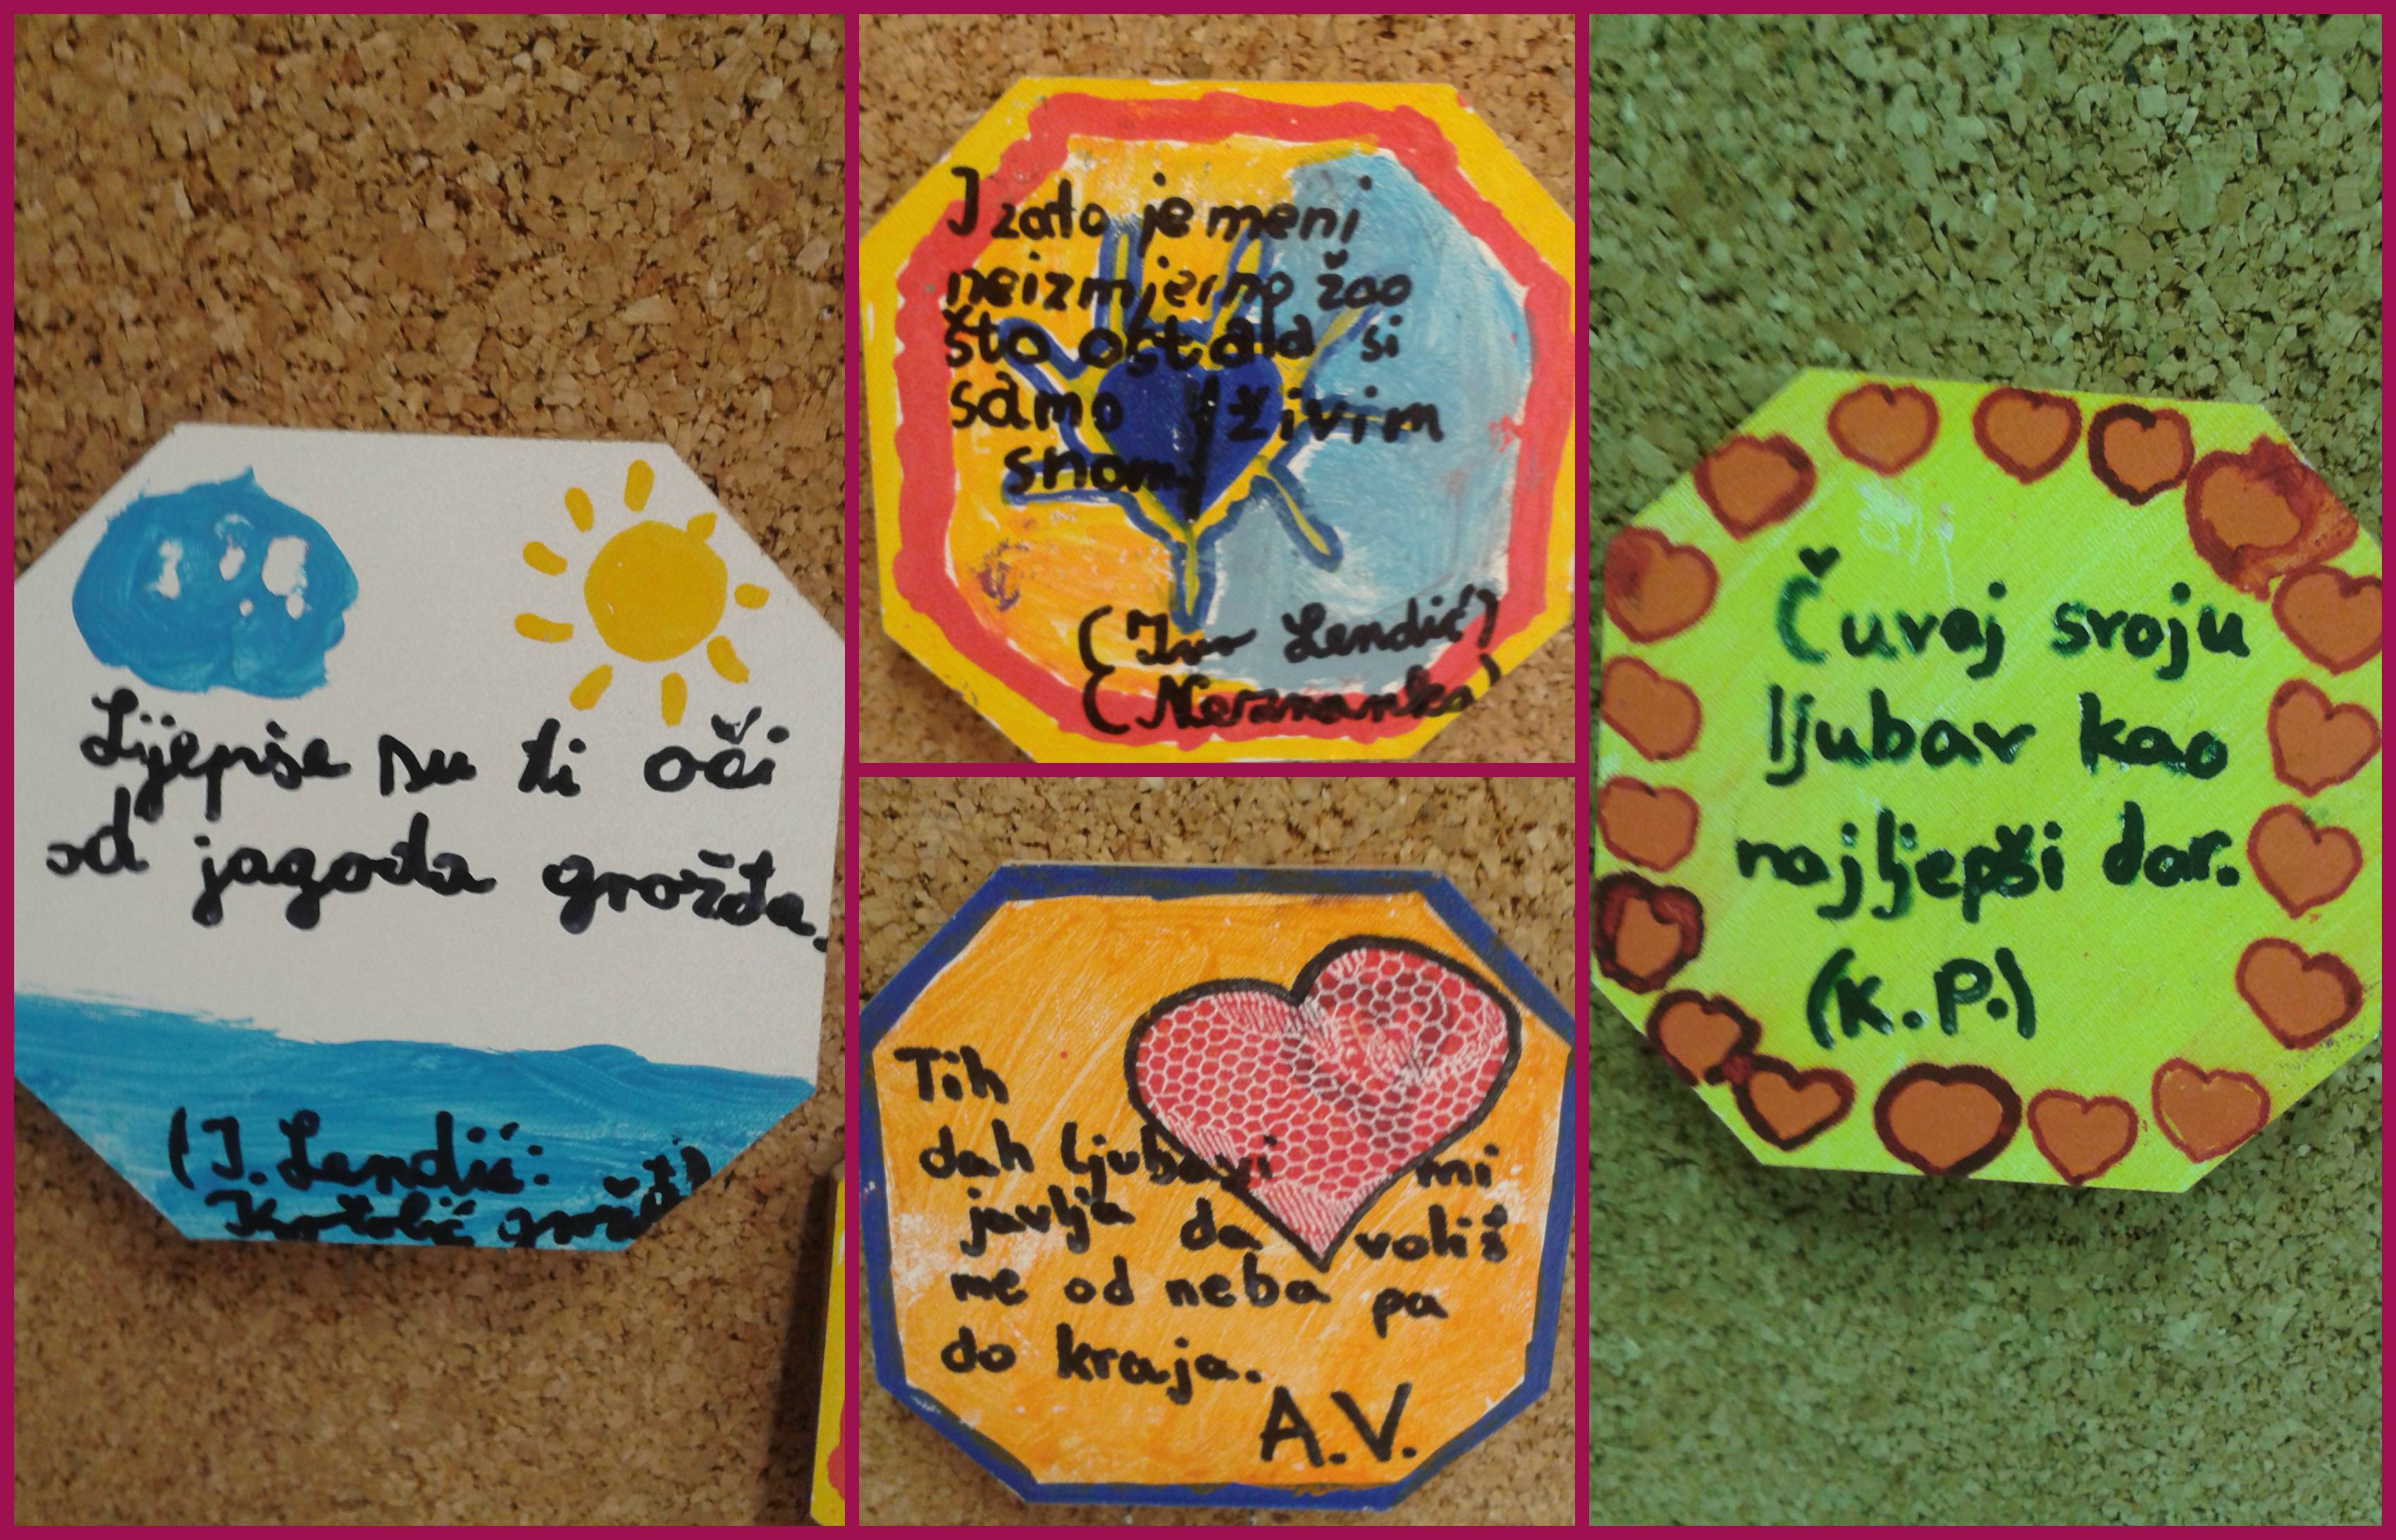 Lijepše su ti oči
od jagoda grožđa.
(I. Lendić:
I zato je meni
neizmjerno žao
što ostala si
samo živim
snom
(Ivo Lendić)
(Neznanka)
Tih
dah ljubavi mi
javlja da voliš
me od neba pa
do kraja.
A.V.
Čuvaj svoju
ljubav kao
najljepši dar.
(K.P.)